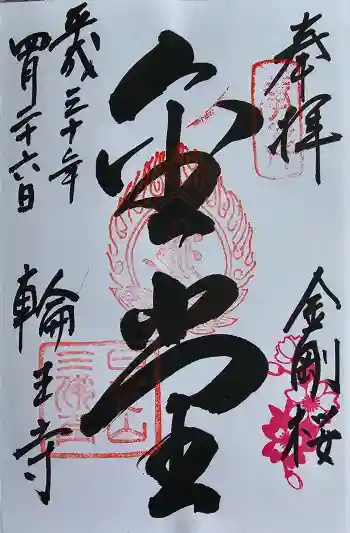 奉拝
金剛桜
金堂
平成三十年
四月二十六日
輪王寺